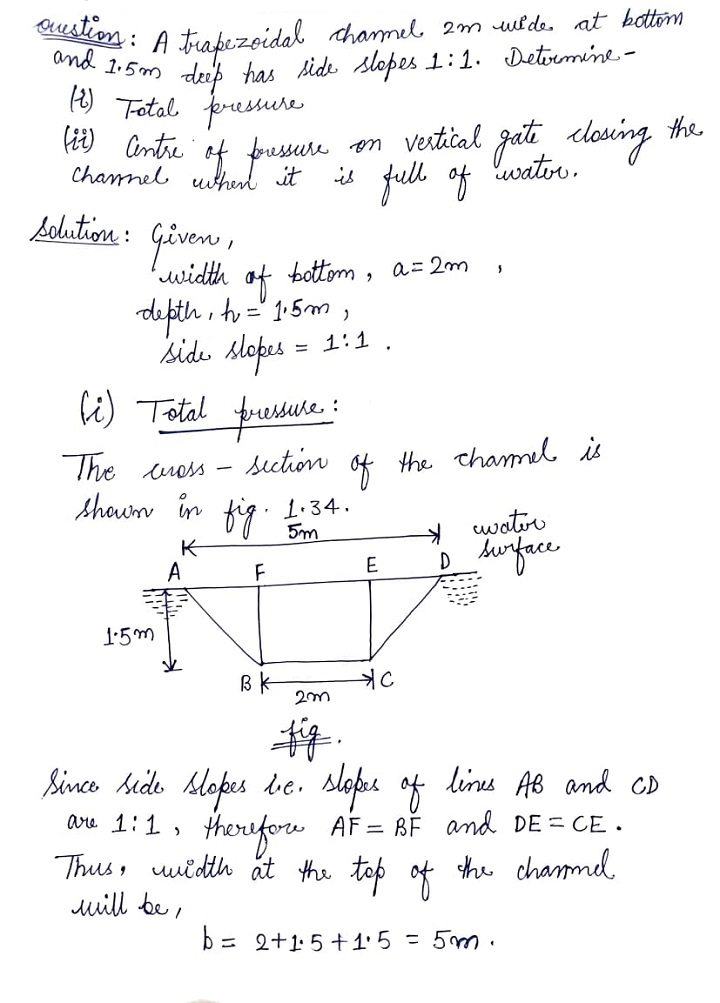 Question: A trapezoidal channel 2m wide at bottom
and 1.5m deep has side slopes 1:1. Determine-
(i) Total pressure
(ii) Centre of pressure on vertical gate closing the
channel when it is full of water.
Solution: Given,
width of bottom, a=2m ,
depth, h = 1.5m ,
side slopes = 1:1 .
(i) Total pressure:
The cross-section of the channel is
shown in fig. 1.34.
5m
water
surface
A F E D
1.5m
B C
2m
fig.
Since side slopes i.e. slopes of lines AB and CD
are 1:1, therefore AF = BF and DE = CE.
Thus, width at the top of the channel
will be,
b = 2+1.5+1.5 = 5m.